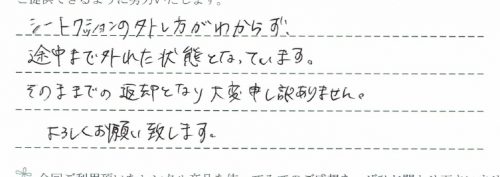 ご提供できるように努力いたします。
シートクッションの外し方がわからず、
途中まで外れた状態となっています。
そのままでの返却となり大変申し訳ありません。
よろしくお願い致します。